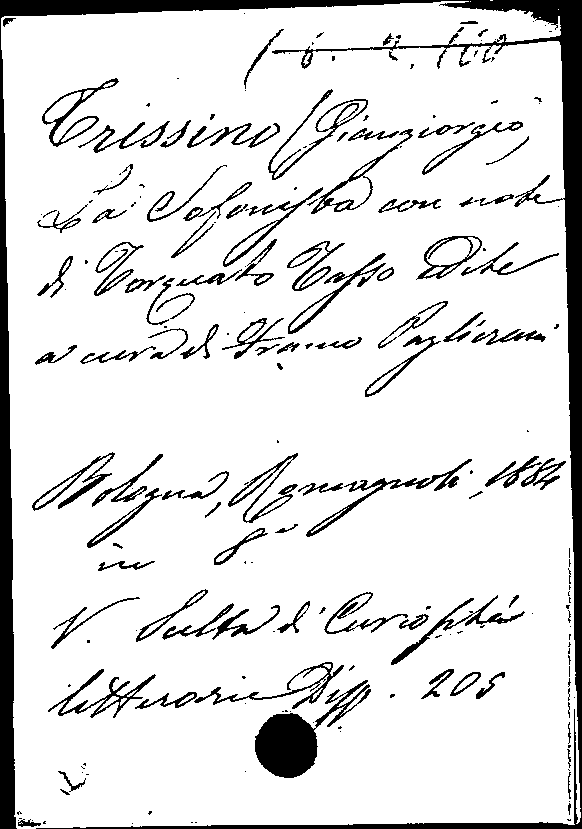 16. 2. 100
Trissino (Giangiorgio)
La Sofonisba con note
di Torquato Tasso edite
a cura di Franco Paglierani
Bologna, Romagnoli, 1884
in 8º
V. Scelta di Curiosità
letterarie Disp. 205